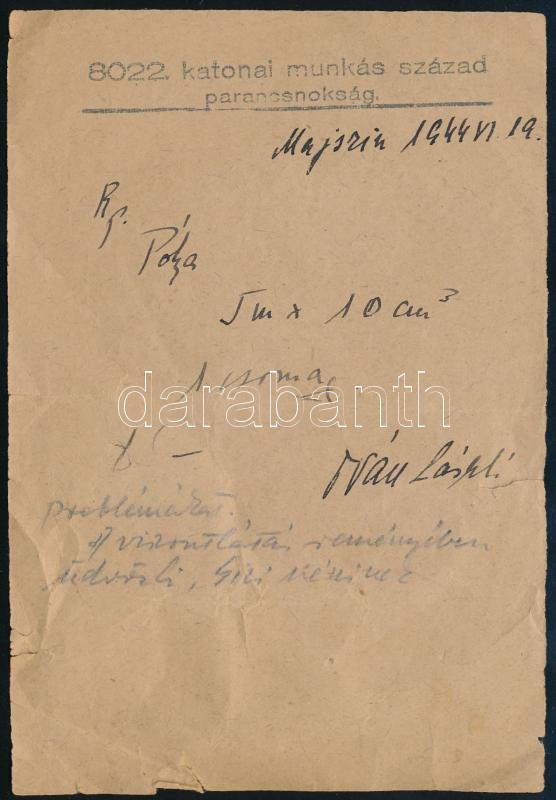 8022. katonai munkás század
parancsnokság.
Majszin 1944 VI 19.
Rp.
Pólya
5m x 10 cm³
1 csomag
darabanth
Iván László
problémákat.
A viszontlátás reményében
üdvözli, Gizi